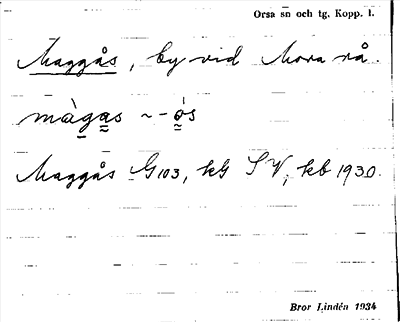 Orsa sn och tg, Kopp. l.
Maggås, by vid Mora rå.
màgas ~ -o̤s
Maggås G103, kG SV, kb 1930.
Bror Lindén 1934